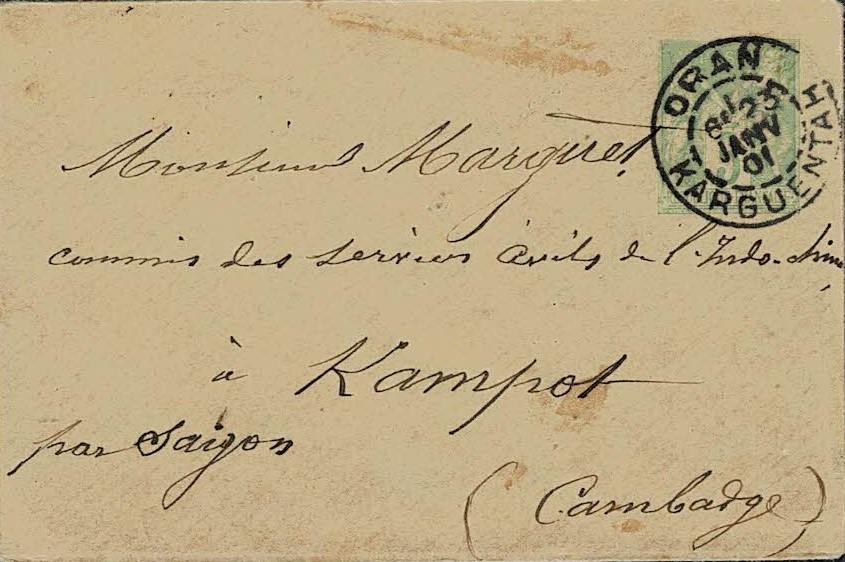 ORAN
KARGUENTAH
8E 23
JANV
01
Monsieur Marguet,
commis des services civils de l'Indo-chine,
à Kampot
par Saigon
(Cambadge)